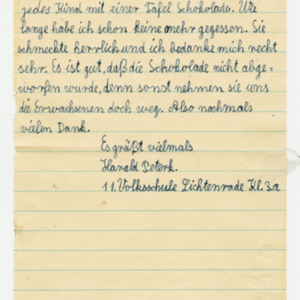 jedes Kind mit einer Tafel Schokolade. Wie
lange habe ich schon keine mehr gegessen. Sie
schmeckte herrlich und ich bedanke mich recht
sehr. Es ist gut, daß die Schokolade nicht abge-
worfen wurde, denn sonst nehmen sie uns
die Erwachsenen doch weg. Also nochmals
vielen Dank.
Es grüßt vielmals
Harald Peterk.
11. Volksschule Lichtenrade Kl. 3a